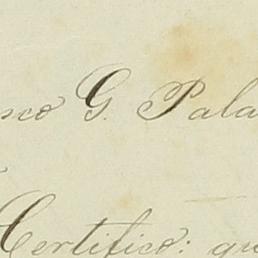 nco G. Pala
Certifico: qu